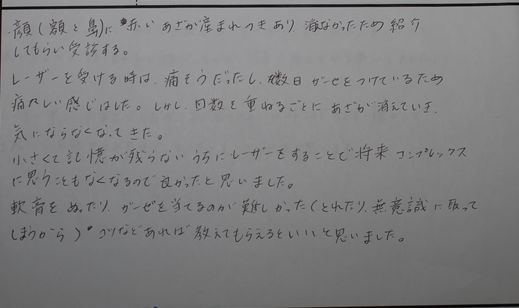 ・顔(額と鼻)に赤いあざが産まれつきあり消なかったため紹介
してもらい受診する。
レーザーを受ける時は、痛そうだったし、数日ガーゼをつけているため
痛々しい感じはした。しかし、回数を重ねるごとにあざが消えていき、
気にならなくなってきた。
小さくて記憶が残らないうちにレーザーをすることで将来コンプレックス
に思うこともなくなるので良かったと思いました。
軟膏をぬったり、ガーゼを当てるのが難しかった(とれたり、無意識に取って
しまうから)コツなどあれば教えてもらえるといいと思いました。